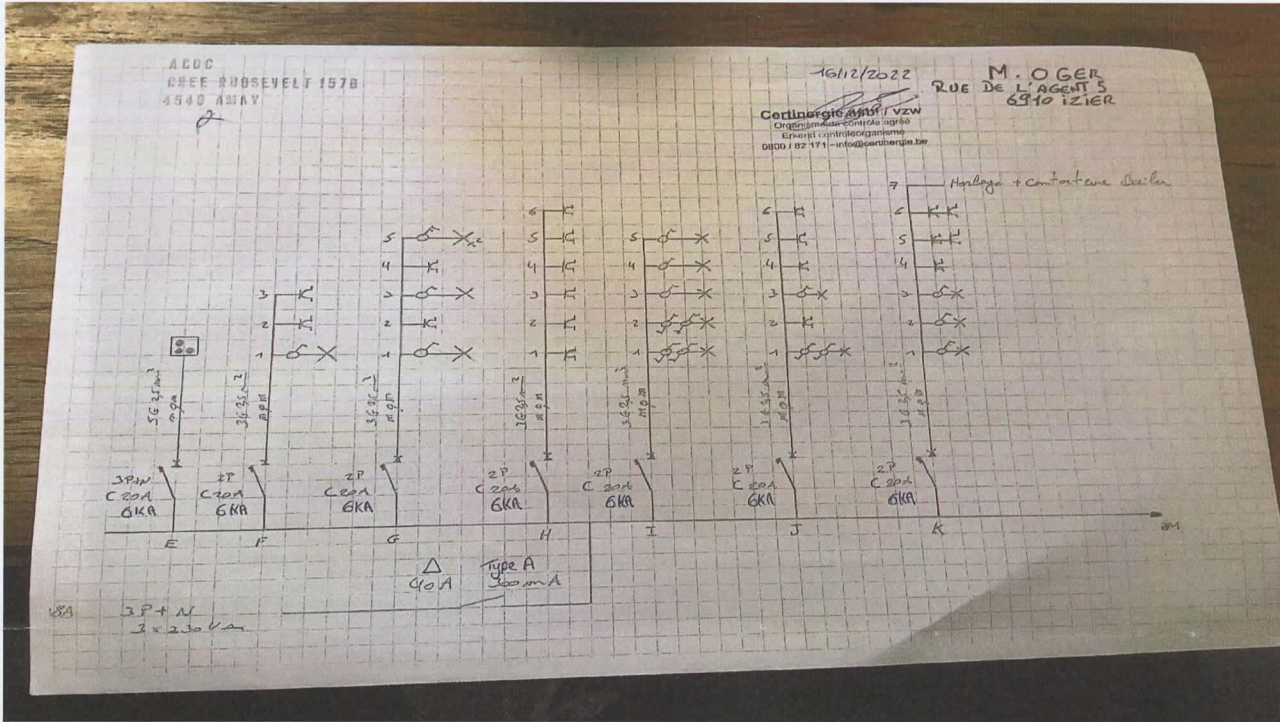 ACDC
CHEE ROOSEVELT 157B
4540 AMAY
16/12/2022
M. OGER
RUE DE L'AGENT 5
6910 IZIER
Certinergie asbl / vzw
Organisme de contrôle agréé
Erkend controleorganisme
0800 / 82 171 - info@certinergie.be
3
2
1
5
4
3
2
1
x2
6
5
4
3
2
1
5
4
3
2
1
6
5
4
3
2
1
7
6
5
4
3
2
1
Horloge + contacteur Boiler
5G 2,5 mm²
3G 2,5 mm²
3G 2,5 mm²
3G 2,5 mm²
3G 2,5 mm²
3G 2,5 mm²
3G 2,5 mm²
3P+N
C 20A
6KA
2P
C 20A
6KA
2P
C 20A
6KA
2P
C 20A
6KA
2P
C 20A
6KA
2P
C 20A
6KA
2P
C 20A
6KA
E
F
G
H
I
J
K
Δ
40A
Type A
300mA
3P+N